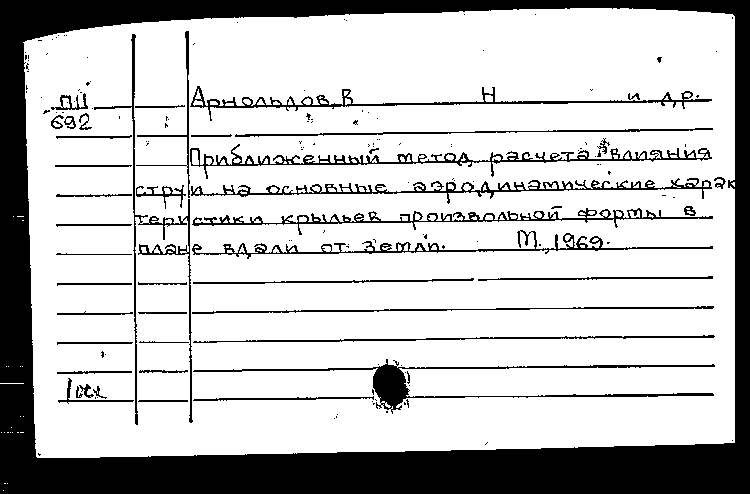 П11 Арнольдов, В Н и др.
692
Приближенный метод расчета влияния
струи на основные аэродинамические харак
теристики крыльев произвольной формы в
плане вдали от земли. М., 1969.